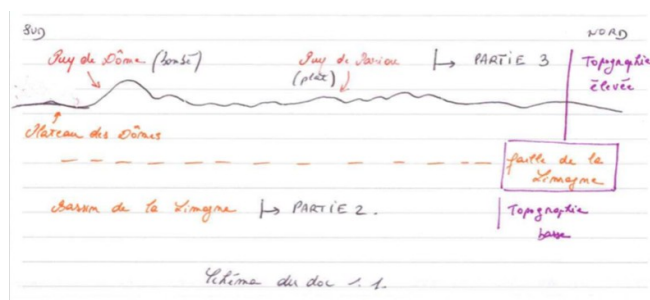 SUD
NORD
Puy de Dôme (bombé)
Puy de Pariou
(plat)
↦ PARTIE 3
Topographie
élevée
Plateau des Dômes
faille de la
Limagne
Bassin de la Limagne
↦ PARTIE 2.
Topographie
basse
Schéma du doc 1.1.